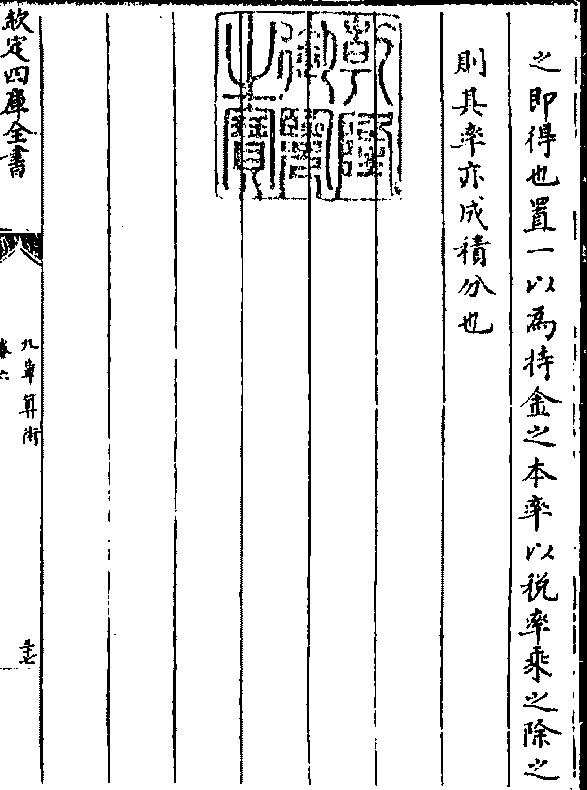 之即得也置一以為持金之本率以稅率乘之除之
則其率亦成積分也
乾隆御覽之寶
欽定四庫全書
九章算術
卷六